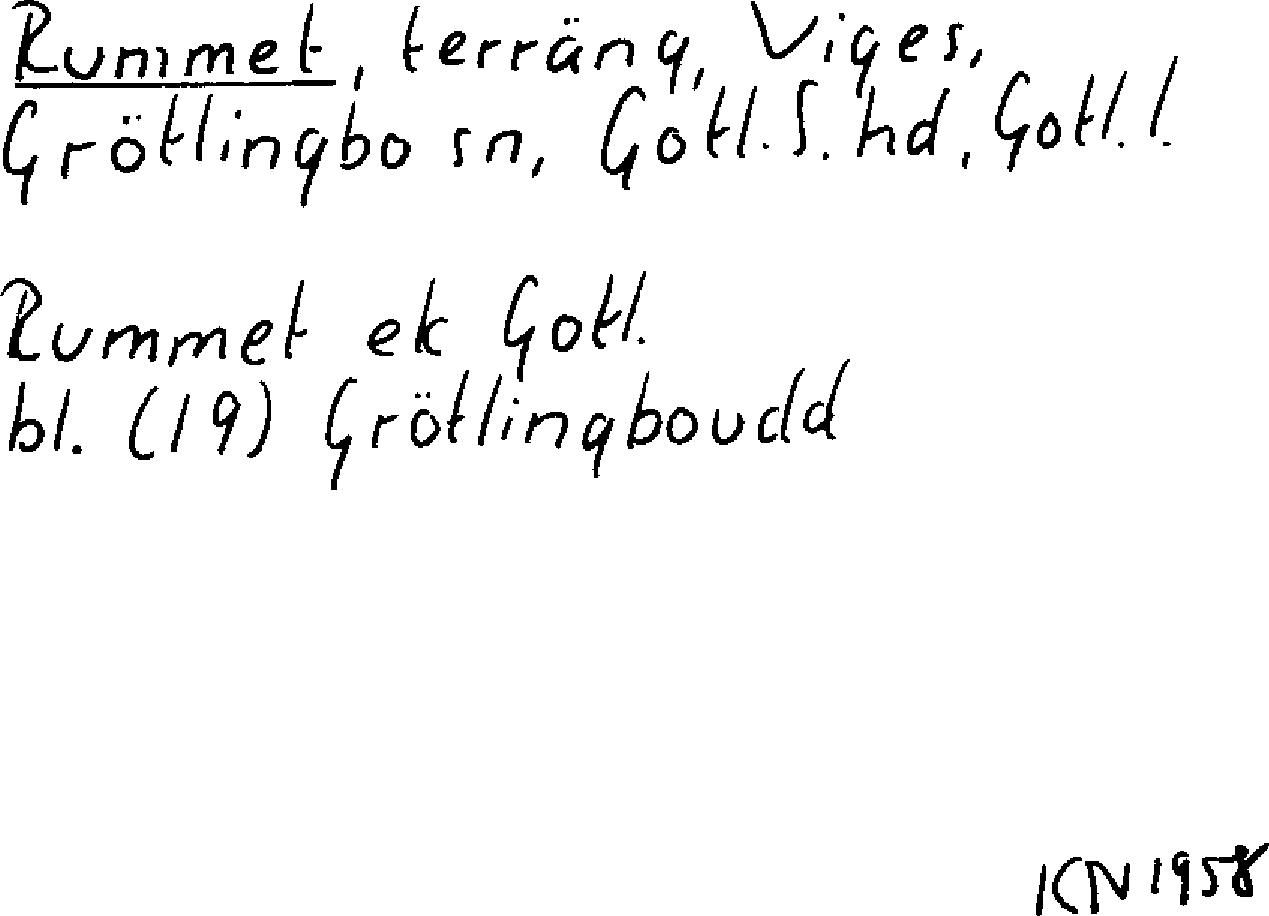 Rummet, terräng, Viges,
Grötlingbo sn, Gotl. S. hd, Gotl. l.
Rummet ek Gotl.
bl. (19) Grötlingboudd
KN 1958